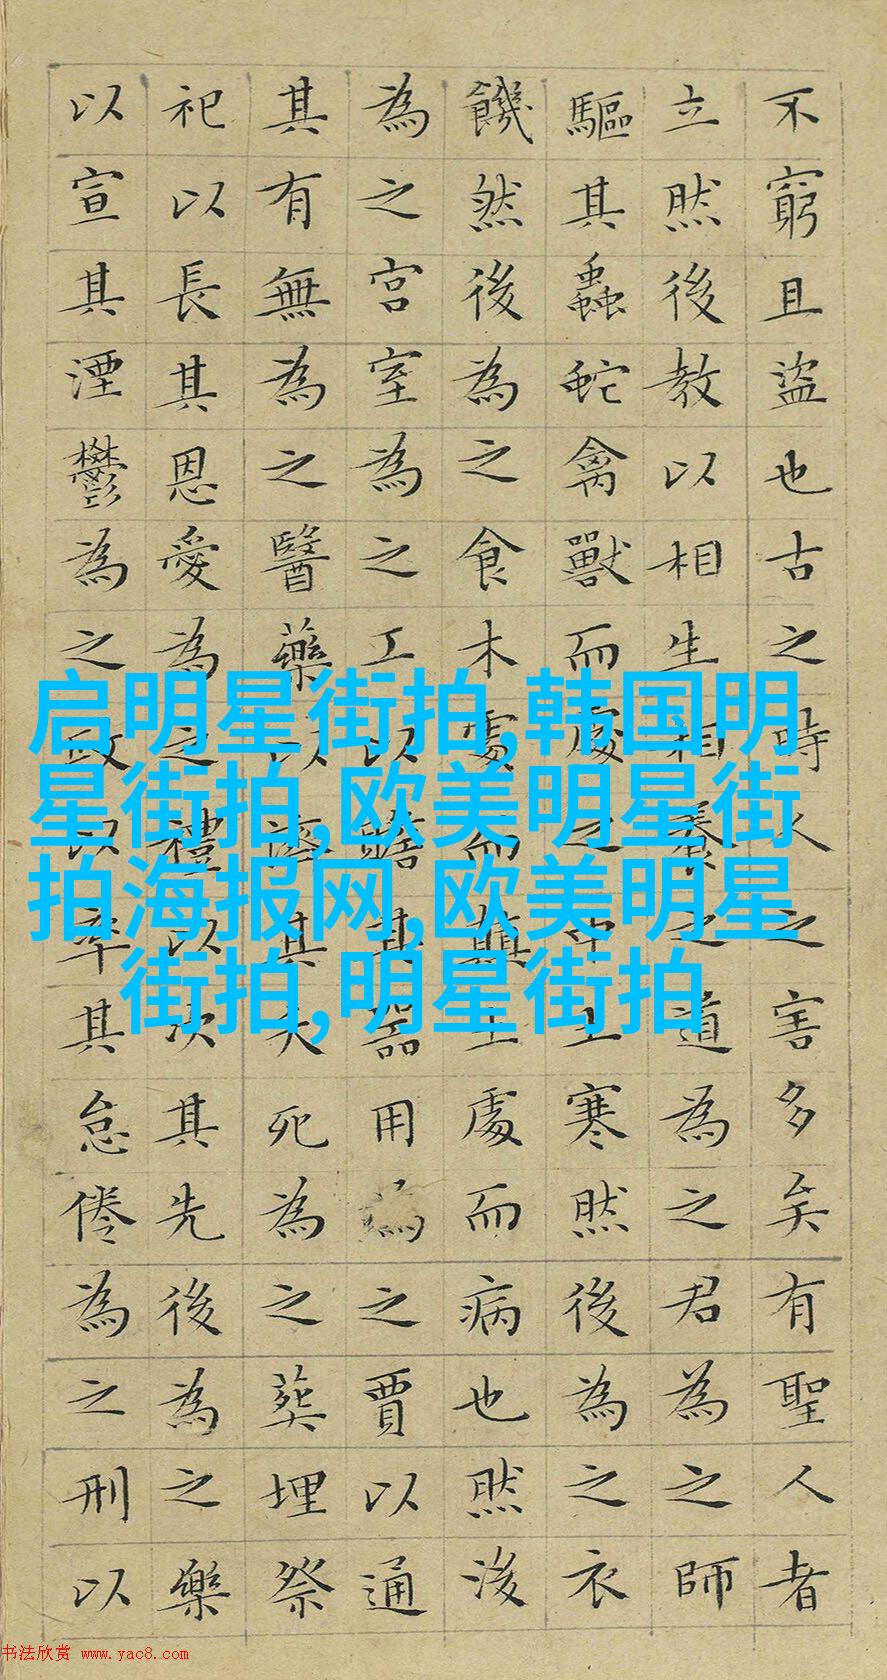 不窮且盜也古之時人之害多矣有聖人者
立然後教以相生相養之道為之君為之師
驅其蟲蛇禽獸而處之中土寒然後為之衣
饑然後為之食木處而顛土處而病也然後
為之宮室為之工以贍其器用為之賈以通
其有無為之醫藥以濟其夭死為之葬埋祭
祀以長其恩愛為之禮以次其先後為之樂
以宣其湮鬱為之政以率其怠倦為之刑以
启明星街拍,韩国明
星街拍,欧美明星街
拍海报网,欧美明星
街拍,明星街拍
书法欣赏 www.yac8.com